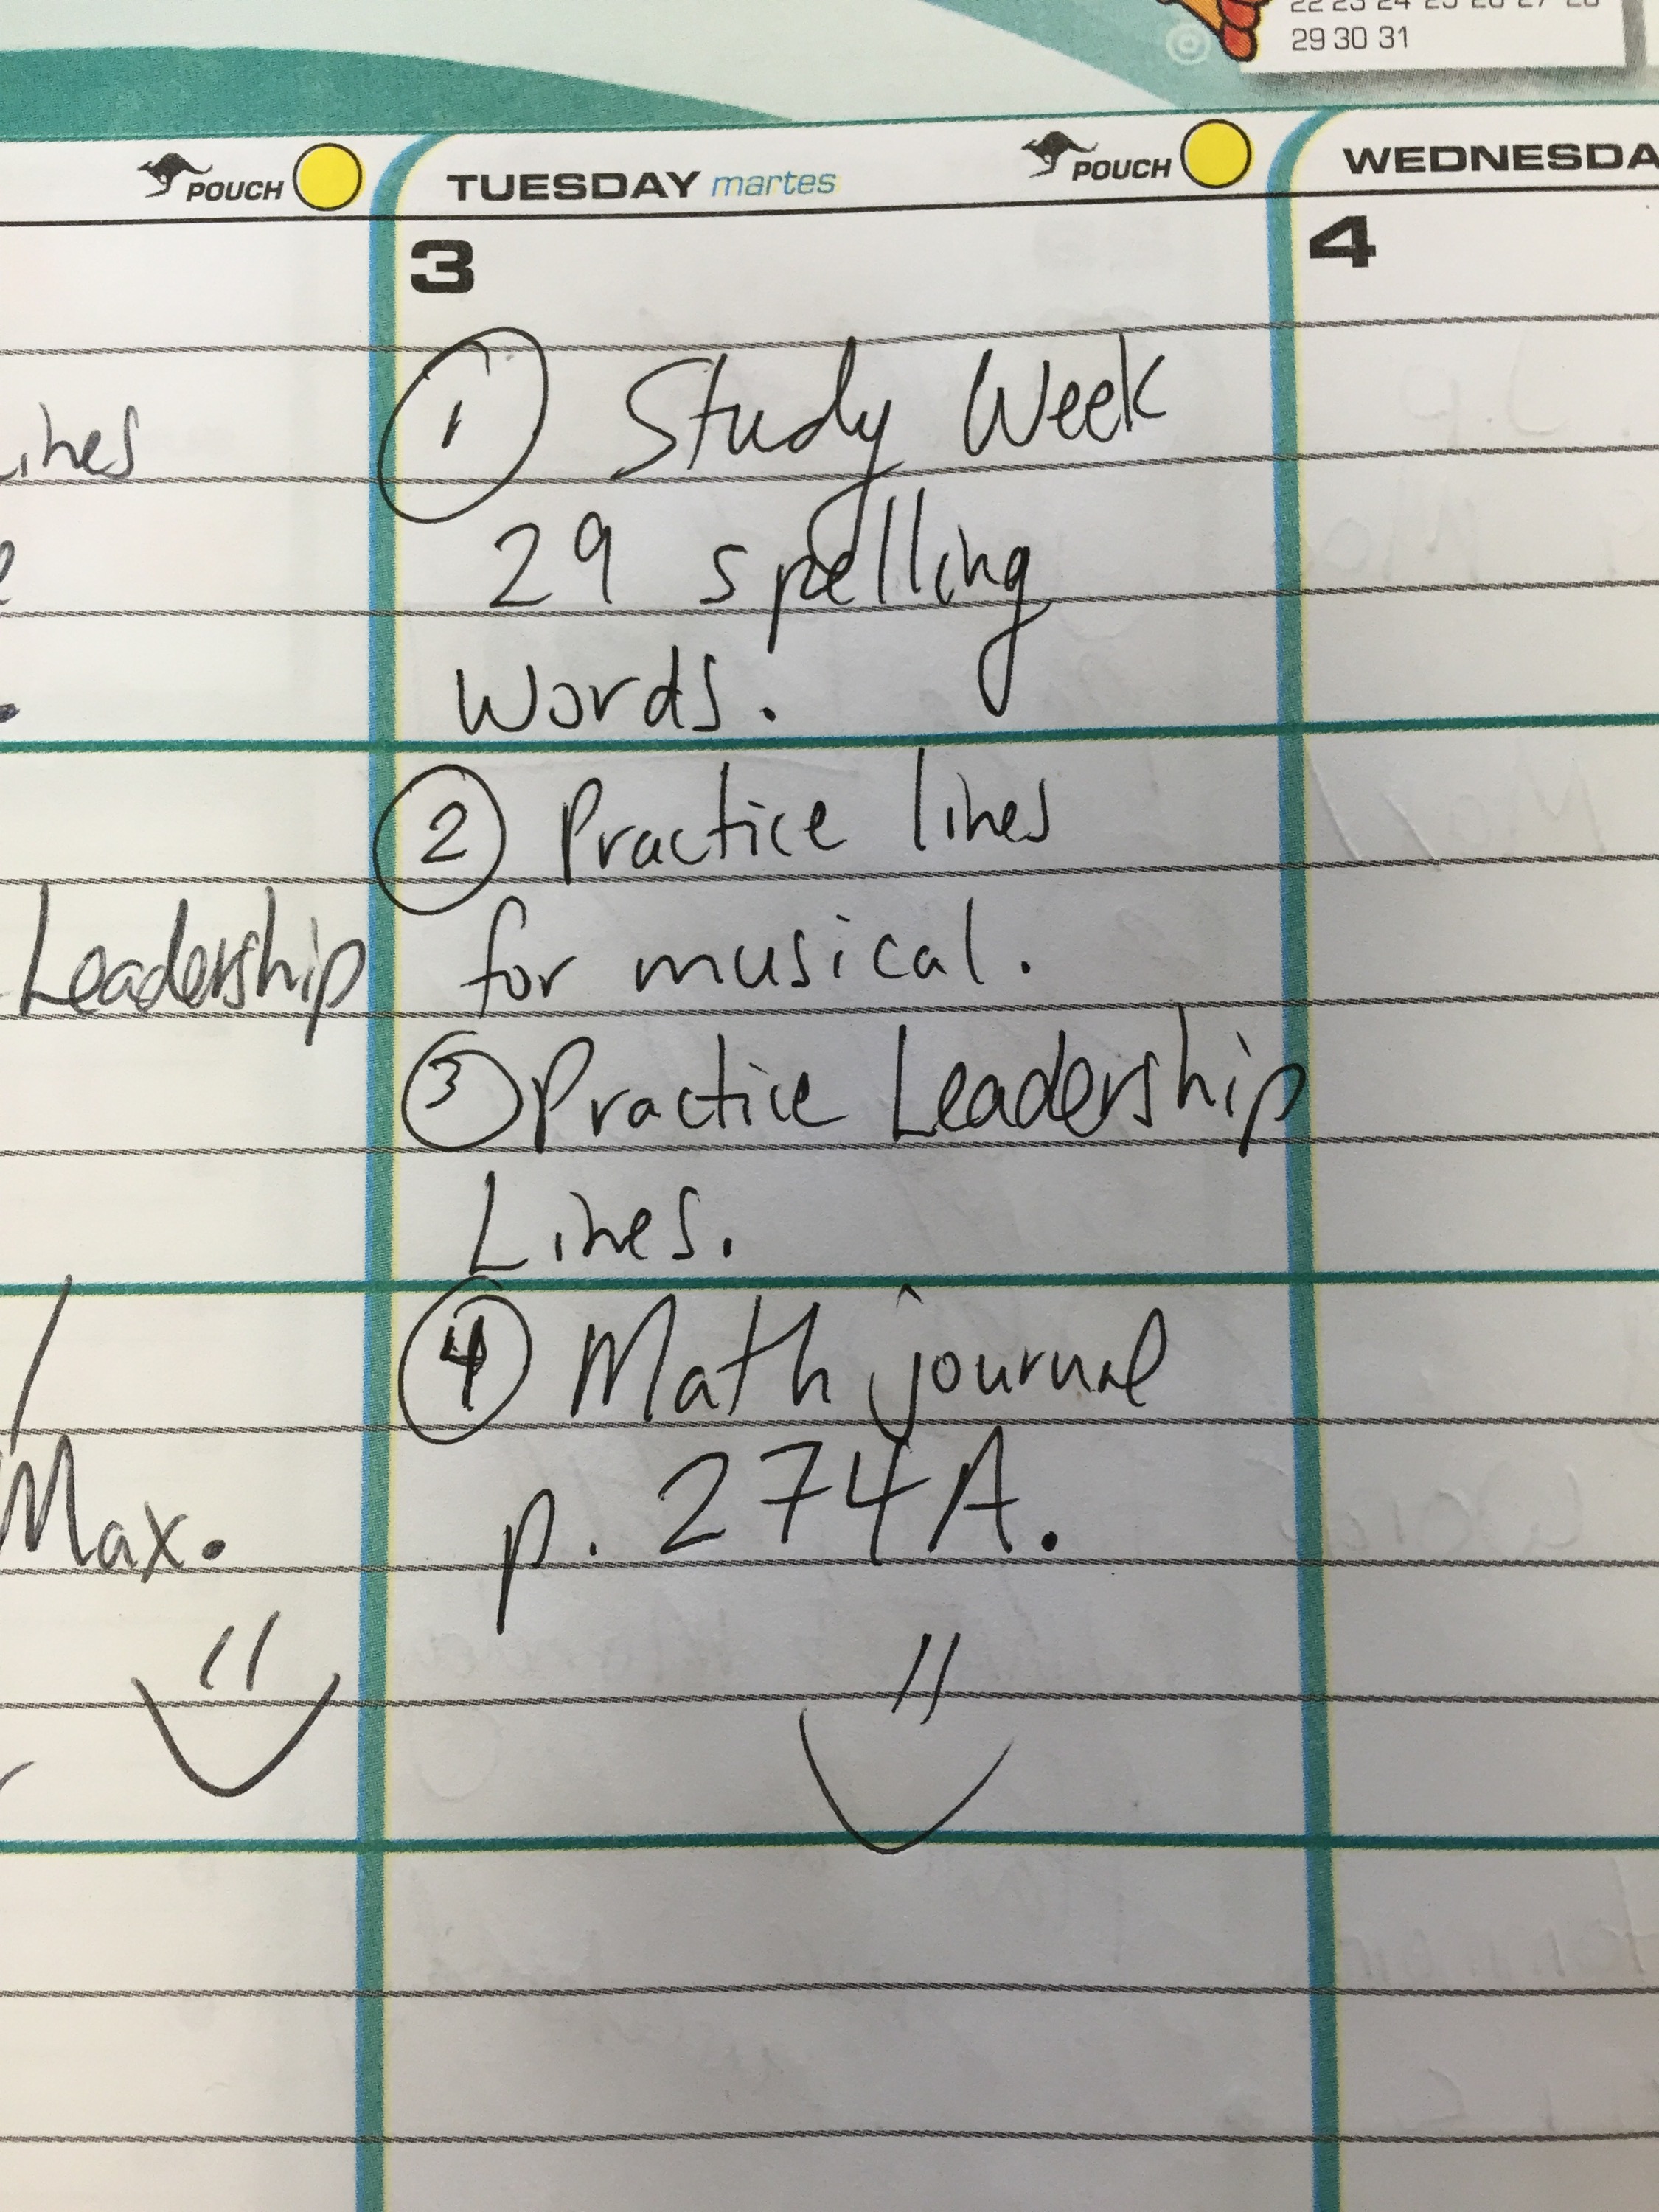 22 23 24 25 26 27 28
29 30 31
POUCH
TUESDAY martes
POUCH
WEDNESDA
3
4
Lines
Leadership
Max.
1 Study Week
29 spelling
words.
2 Practice lines
for musical.
3 Practice Leadership
Lines.
4 Math journal
p. 274A.